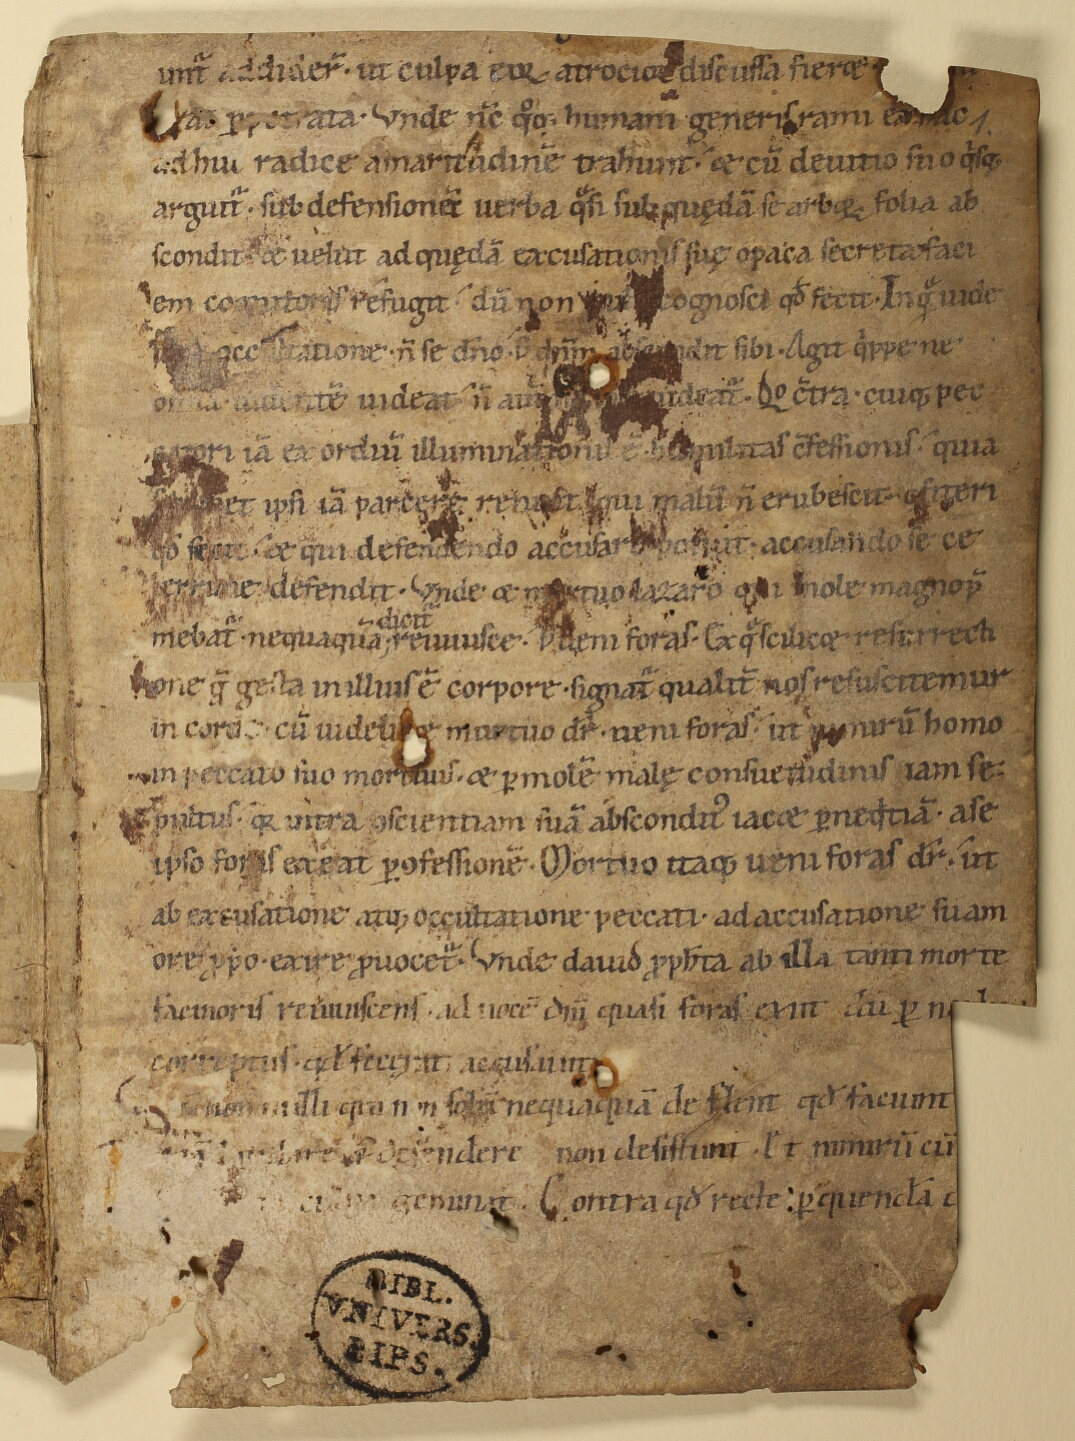 unt᷑ addider̄ · ut culpa eoꝝ atrocior discussa fieret
pꝑetrata · Vnde nc̄ qͦq; humani generis rami ex hac
adhuc radice amaritudinē trahunt · & cū de uitio suo qͥsq;
arguit᷑ · sub defensionū uerba qͣsi sub quędā se arboꝝ folia ab
scondit & uelut ad quędā excusationis suę opaca secreta faci
em conditoris refugit dū non uult cognosci qď fecit · In qͣ uide
occultatione · n̄ se dn̄o · s; dn̄m abscondit sibi · Agit qͥppe ne
omīa uidentē uideat n̄ aut̄ uideat᷑ · Qͦ cͦtra · cuiq; pec
catori iā exordiū illuminationis ē · humilitas cͦfessionis · quia
ipsi iā parcere renuit · qui malū n̄ erubescit ꝯfiteri
qď fecit · & qui defendendo accusari potuit · accusando se ce
lerrime defendit · Vnde & mortuo lazaro qui mole magna p̄
mebat᷑ · nequaquā dicit᷑ reuiuisce · s; ueni foras · Ex qͣ scilicet resurrecti
one q̄ gesta in illius ē corpore · signat᷑ qualit̄ nos resuscitemur
in corde · cū uidelicet mortuo dr̄ · ueni foras · ut nimirū homo
in peccato suo mortuus · & ꝑ molē malę consuetudinis iam se
pultus · qͥa intra ꝯscientiam suā absconditꝰ iacet ꝑ neqͥtiā · a se
ipso foras exeat ꝑ ꝯfessionē · Mortuo itaq; ueni foras dr̄ · ut
ab excusatione atq; occultatione peccati · ad accusationē suam
ore ꝓpͥo · exire ꝓuocet᷑ · Vnde dauid ꝓph̄ta ab illa tanti morte
facinoris reuiuiscens · ad uocē dn̄i quasi foras exiit dū ꝑ
correptus · qď fecerat accusauit
nonnulli qui non solū nequaquā deflent qď faciunt
laudare & defendere non desistunt · Et nimirū cū
geminat · Contra qď recte ꝑ quendā
BIBL.
VNIVERS.
LIPS.